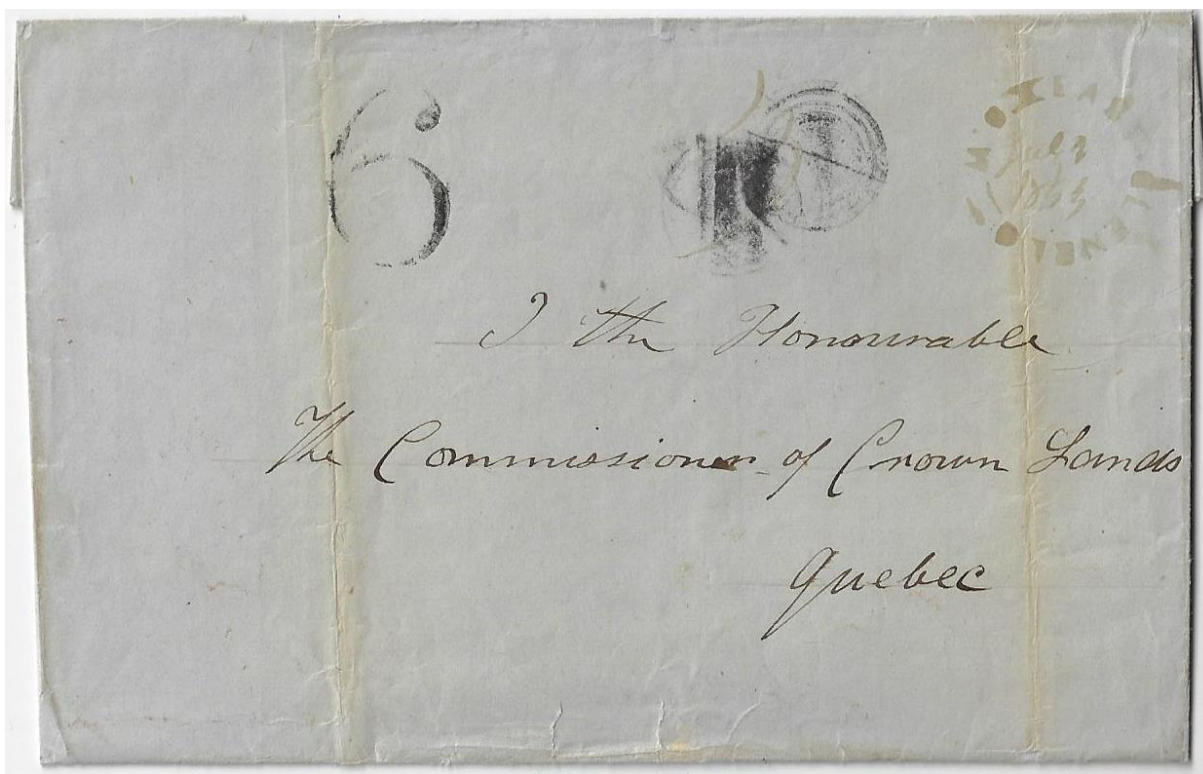 6
Jul 3
To the Honourable
The Commissioner of Crown Lands
Quebec